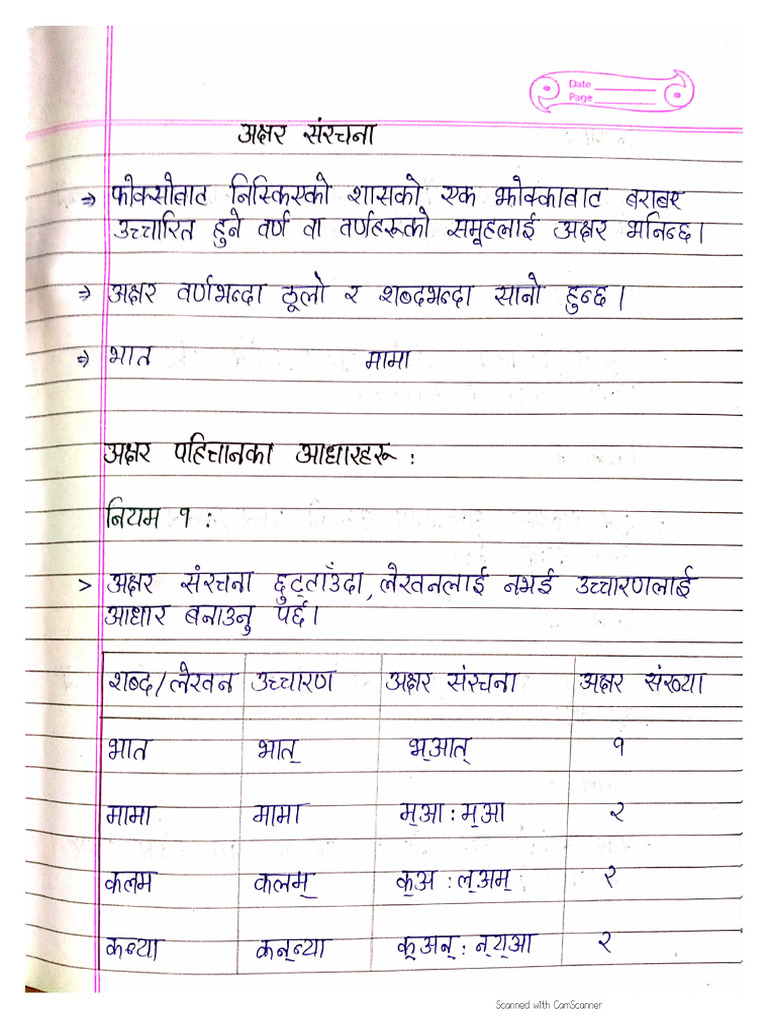 Date
Page
अक्षर संरचना
⇒ फोक्सोबाट निस्किएको शासको एक झोक्काबाट बराबर
उच्चारित हुने वर्ण वा वर्णहरूको समूहलाई अक्षर भनिन्छ।
⇒ अक्षर वर्णभन्दा ठूलो र शब्दभन्दा सानो हुन्छ।
⇒ भात मामा
अक्षर पहिचानका आधारहरू :
नियम १ :
> अक्षर संरचना छुट्ट्याउँदा, लेखनलाई नभई उच्चारणलाई
आधार बनाउनु पर्छ।
शब्द/लेखन उच्चारण अक्षर संरचना अक्षर संख्या
भात भात् भ्आत् १
मामा मामा म्आ : म्आ २
कलम कलम् क्अ : ल्अम् २
कन्या कन्न्या क्अन् : न्य्आ २
Scanned with CamScanner